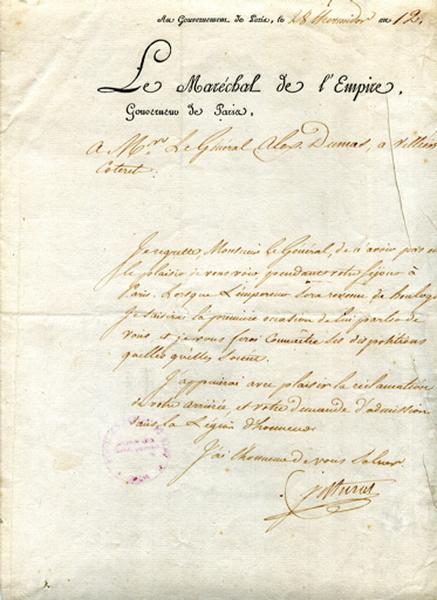 Au Gouvernement de Paris, le 28 thermidor an 12.
Le Maréchal de l'Empire,
Gouverneur de Paris,
A Mr. Le Général Alex. Dumas, a Villers
Coteret.
Je regrette, Monsieur le Général, de n'avoir pas eu
le plaisir de vous voir, pendant votre séjour à
Paris. Lorsque L'empereur sera revenu de boulogne
je saisirai la première occasion de lui parler de
vous, et je vous ferai Connaître ses dispositions
quelles quelles Soient.
J'appuierai avec plaisir la réclamation
de votre arriéré, et votre demande d'admission
dans la Légion d'honneur
J'ai l'honneur de vous Saluer.
J Murat